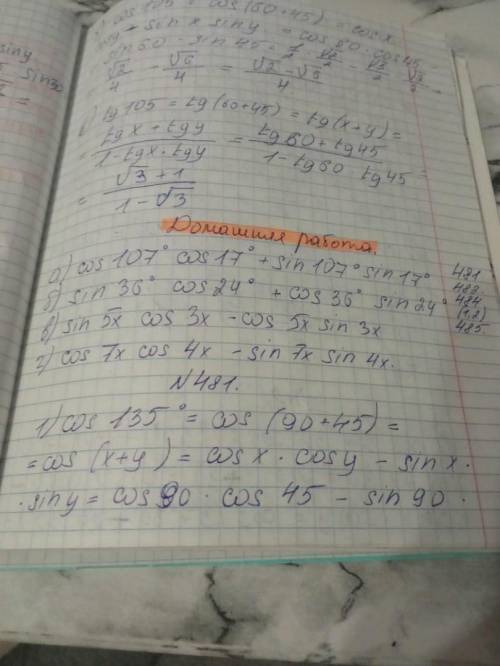 cos 105 = cos (60+45) = cosx
sinx siny = cos 60 · cos 45 -
sin 60 · sin 45 =
siny
sin 30
√2/4 - √6/4 = (√2 - √6)/4
tg 105 = tg (60+45) = tg (x+y) =
(tg x + tg y)/(1 - tg x · tg y) = (tg 60 + tg 45)/(1 - tg 60 tg 45) =
= (√3 + 1)/(1 - √3)
Домашняя работа.
а) cos 107° cos 17° + sin 107° sin 17°
б) sin 36° cos 24° + cos 36° sin 24°
в) sin 5x cos 3x - cos 5x sin 3x
г) cos 7x cos 4x - sin 7x sin 4x.
481
484
(1,2)
485
N 481.
1) cos 135° = cos (90+45) =
= cos (x+y) = cos x · cos y - sin x ·
· sin y = cos 90 · cos 45 - sin 90 ·